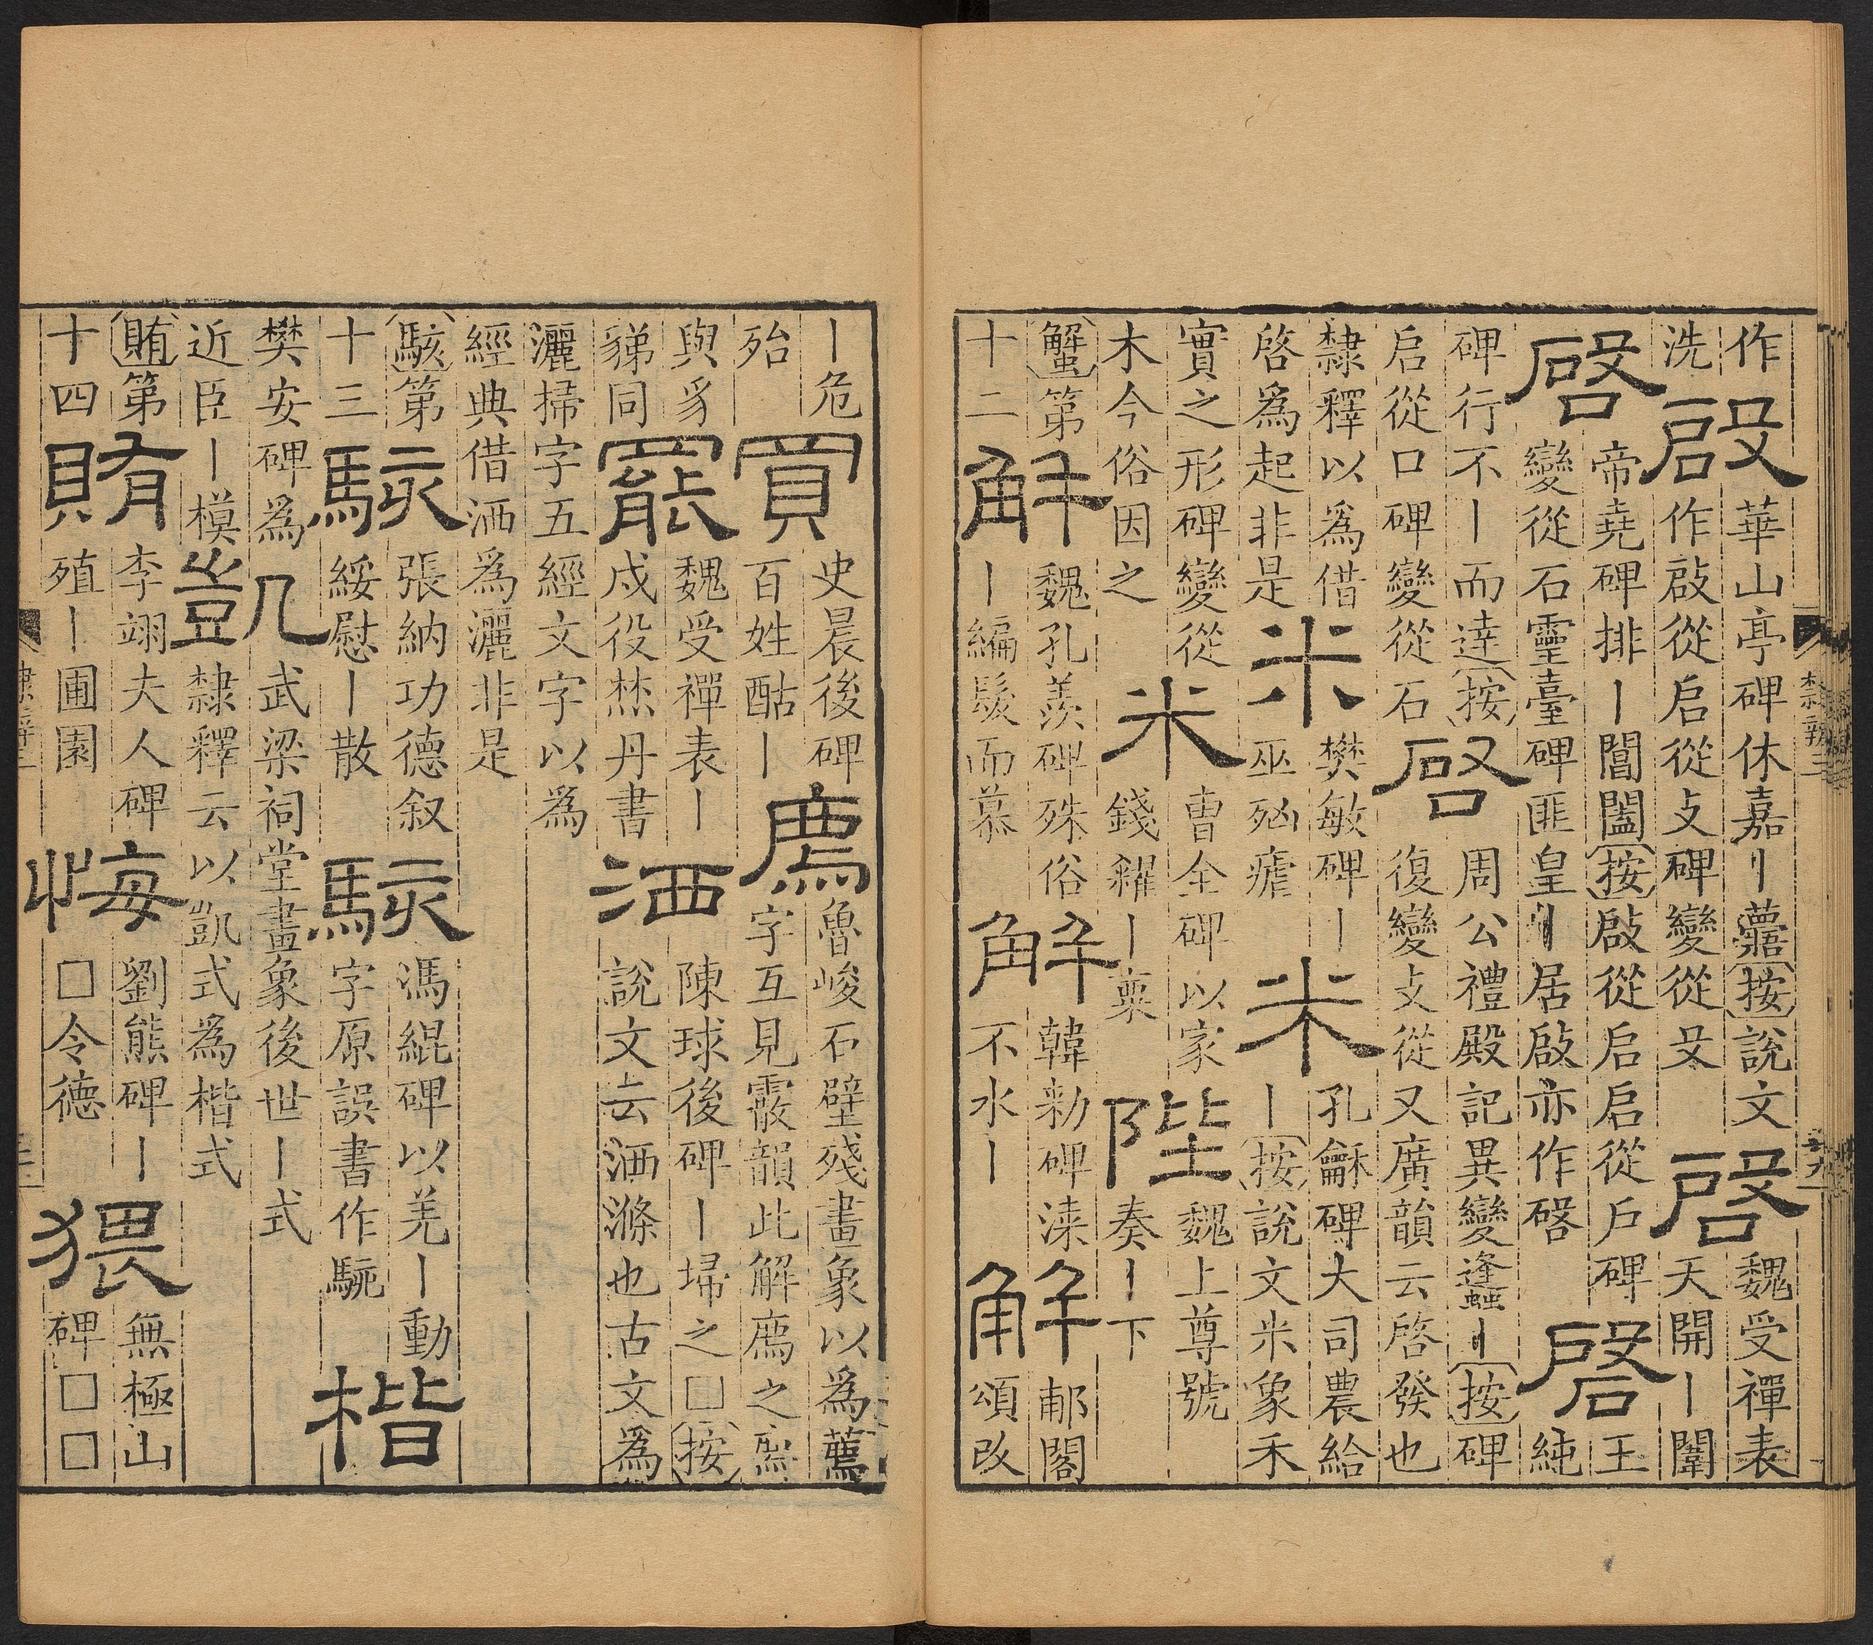 作
洗
啟
華山亭碑休嘉丨[按]說文
作啟從启從攴碑變從殳
啓
魏受禪表
天開丨闡
啓
帝堯碑排丨閶闔[按]啟從启启從戶碑
變從石靈臺碑匪皇丨居啟亦作啓
啓
王
純
碑行不丨而達[按]
启從口碑變從石
啓
周公禮殿記異變逢蠭丨[按]碑
復變攴從又廣韻云啓發也
隸釋以為借
啓爲起非是
米
樊敏碑丨
巫瘧
米
孔龢碑大司農給
丨[按]說文米象禾
實之形碑變從
木今俗因之
米
曹全碑以家
錢糴丨粟
陛
魏上尊號
奏丨下
[蟹]第
十二
解
魏孔羨碑殊俗
丨編髮而慕
解
韓勑碑漆
不水丨
解
郙閣
頌改
丨危
殆
買
史晨後碑
百姓酤丨
廌
魯峻石壁殘畫象以為薦
字互見霰韻此解廌之廌
與豸
同
罷
魏受禪表丨
戍役丹書
洒
陳球後碑丨埽之□[按]
說文云洒滌也古文爲
灑掃字五經文字以為
經典借洒爲灑非是
[駭]第
十三
駭
張納功德叙
綏慰丨散
駭
馮緄碑以羌丨動
字原誤書作駹
楷
樊安碑爲
近臣丨模
凱
武梁祠堂畫象後世丨式
隸釋云以凱式為楷式
[賄]第
十四
賄
李翊夫人碑
殖丨圃園
悔
劉熊碑丨
□令德
猥
無極山
碑□□